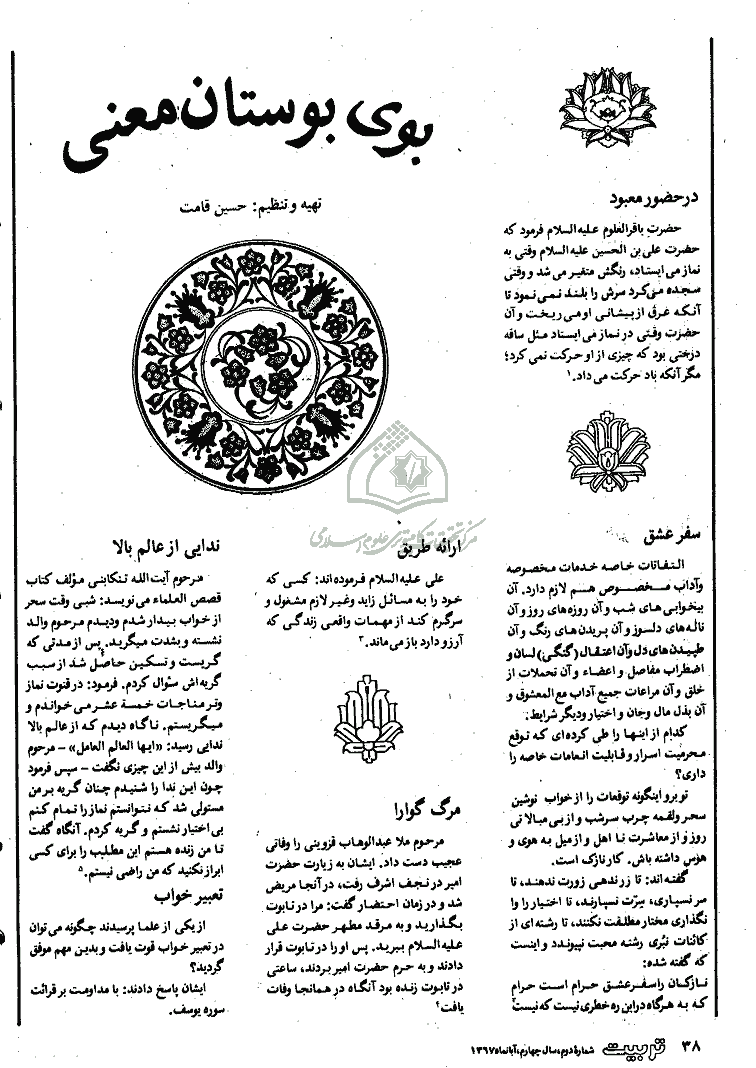 بوی بوستان معنی
تهیه و تنظیم: حسین قامت
در حضور معبود
حضرت باقرالعلوم علیه السلام فرمود که
حضرت علی بن الحسین علیه السلام وقتی به
نماز می ایستاد، رنگش متغیر می شد و وقتی
سجده می کرد سرش را بلند نمی نمود تا
آنکه عرق از پیشانی او می ریخت و آن
حضرت وقتی در نماز می ایستاد مثل ساقه
درختی بود که چیزی از او حرکت نمی کرد؛
مگر آنکه باد حرکت می داد.۱
سفر عشق
التفاتات خاصه خدمات مخصوصه
وآداب مخصوص هم لازم دارد. آن
بیخوابی های شب و آن روزه های روز و آن
ناله های دلسوز و آن پریدن های رنگ و آن
طپیدن های دل و آن اعتقال (گنگی) لسان و
اضطراب مفاصل و اعضاء و آن تحملات از
خلق و آن مراعات جمیع آداب مع المعشوق و
آن بذل مال و جان و اختیار و دیگر شرایط:
کدام از اینها را طی کرده ای که توقع
محرمیت اسرار و قابلیت انعامات خاصه را
داری؟
تو برو اینگونه توقعات را از خواب نوشین
سحر ولقمه چرب سرشب و از بی مبالاتی
روز و از معاشرت نا اهل و از میل به هوی و
هوس داشته باش. کار نازک است.
گفته اند: تا زر ندهی زورت ندهند، تا
سر نسپاری، سرّت نسپارند، تا اختیار را وا
نگذاری مختار مطلقت نکنند، تا رشته ای از
کائنات نبُری رشته محبت نپیوندد و اینست
که گفته شده:
نازکان را سفر عشق حرام است حرام
که به هرگاه در این ره خطری نیست که نیست
ارائه طریق
علی علیه السلام فرموده اند: کسی که
خود را به مسائل زاید و غیر لازم مشغول و
سرگرم کند از مهمات واقعی زندگی که
آرزو دارد باز می ماند.۳
مرگ گوارا
مرحوم ملا عبدالوهاب قزوینی را وفاتی
عجیب دست داد. ایشان به زیارت حضرت
امیر در نجف اشرف رفت، در آنجا مریض
شد و در زمان احتضار گفت: مرا در تابوت
بگذارید و به مرقد مطهر حضرت علی
علیه السلام ببرید. پس او را در تابوت قرار
دادند و به حرم حضرت امیر بردند، ساعتی
در تابوت زنده بود آنگاه در همانجا وفات
یافت۴
ندایی از عالم بالا
مرحوم آیت الله تنکابنی مؤلف کتاب
قصص العلماء می نویسد: شبی وقت سحر
از خواب بیدار شدم ودیدم مرحوم والد
نشسته و بشدت میگرید. پس از مدتی که
گریست و تسکین حاصل شد از سبب
گریه اش سؤال کردم. فرمود: در قنوت نماز
وتر مناجات خمسة عشر می خواندم و
میگریستم. ناگاه دیدم که از عالم بالا
ندایی رسید: «ایها العالم العامل» – مرحوم
والد بیش از این چیزی نگفت – سپس فرمود
چون این ندا را شنیدم چنان گریه بر من
مستولی شد که نتوانستم نماز را تمام کنم
بی اختیار نشستم و گریه کردم. آنگاه گفت
تا من زنده هستم این مطلب را برای کسی
ابراز نکنید که من راضی نیستم.۵
تعبیر خواب
از یکی از علما پرسیدند چگونه می توان
در تعبیر خواب قوت یافت و بدین مهم موفق
گردید؟
ایشان پاسخ دادند: با مداومت بر قرائت
سوره یوسف.
مرکز تحقیقات کامپیوتری علوم اسلامی
۳۸ تربیت شمارهٔ دوم، سال چهارم، آبانماه ۱۳۶۷